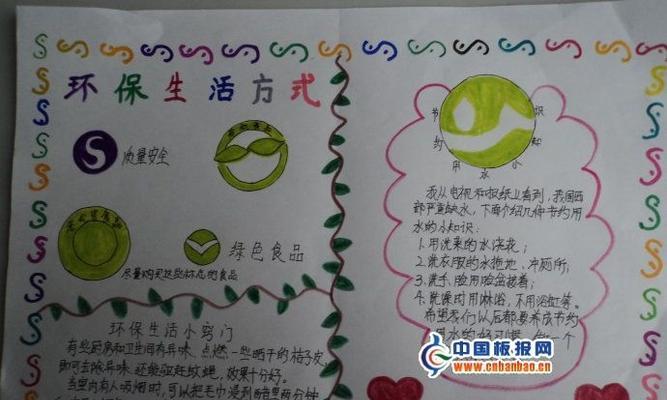 环保生活方式
质量安全
绿色食品
尽量购买这些标志的食品
环保生活小窍门
有些厨房和卫生间有异味,点燃一些晒干的桔子皮,
即可去除异味,还能驱赶蚊蝇,效果十分好。
当室内有人吸烟时,可以把毛巾浸到醋里两分钟
节约用水小知识
我从电视和报纸上看到,我国西
部严重缺水,下面介绍几件节约用
水的小知识:
1.用洗菜的水浇花;
2.洗衣服的水拖地,冲厕所;
3.洗手、脸用脸盆接着;
4.洗澡时用淋浴,不用浴缸等。
希望我们以后都要养成节约
用水的好习惯,做一个
中国板报网
www.cnbanbao.cn